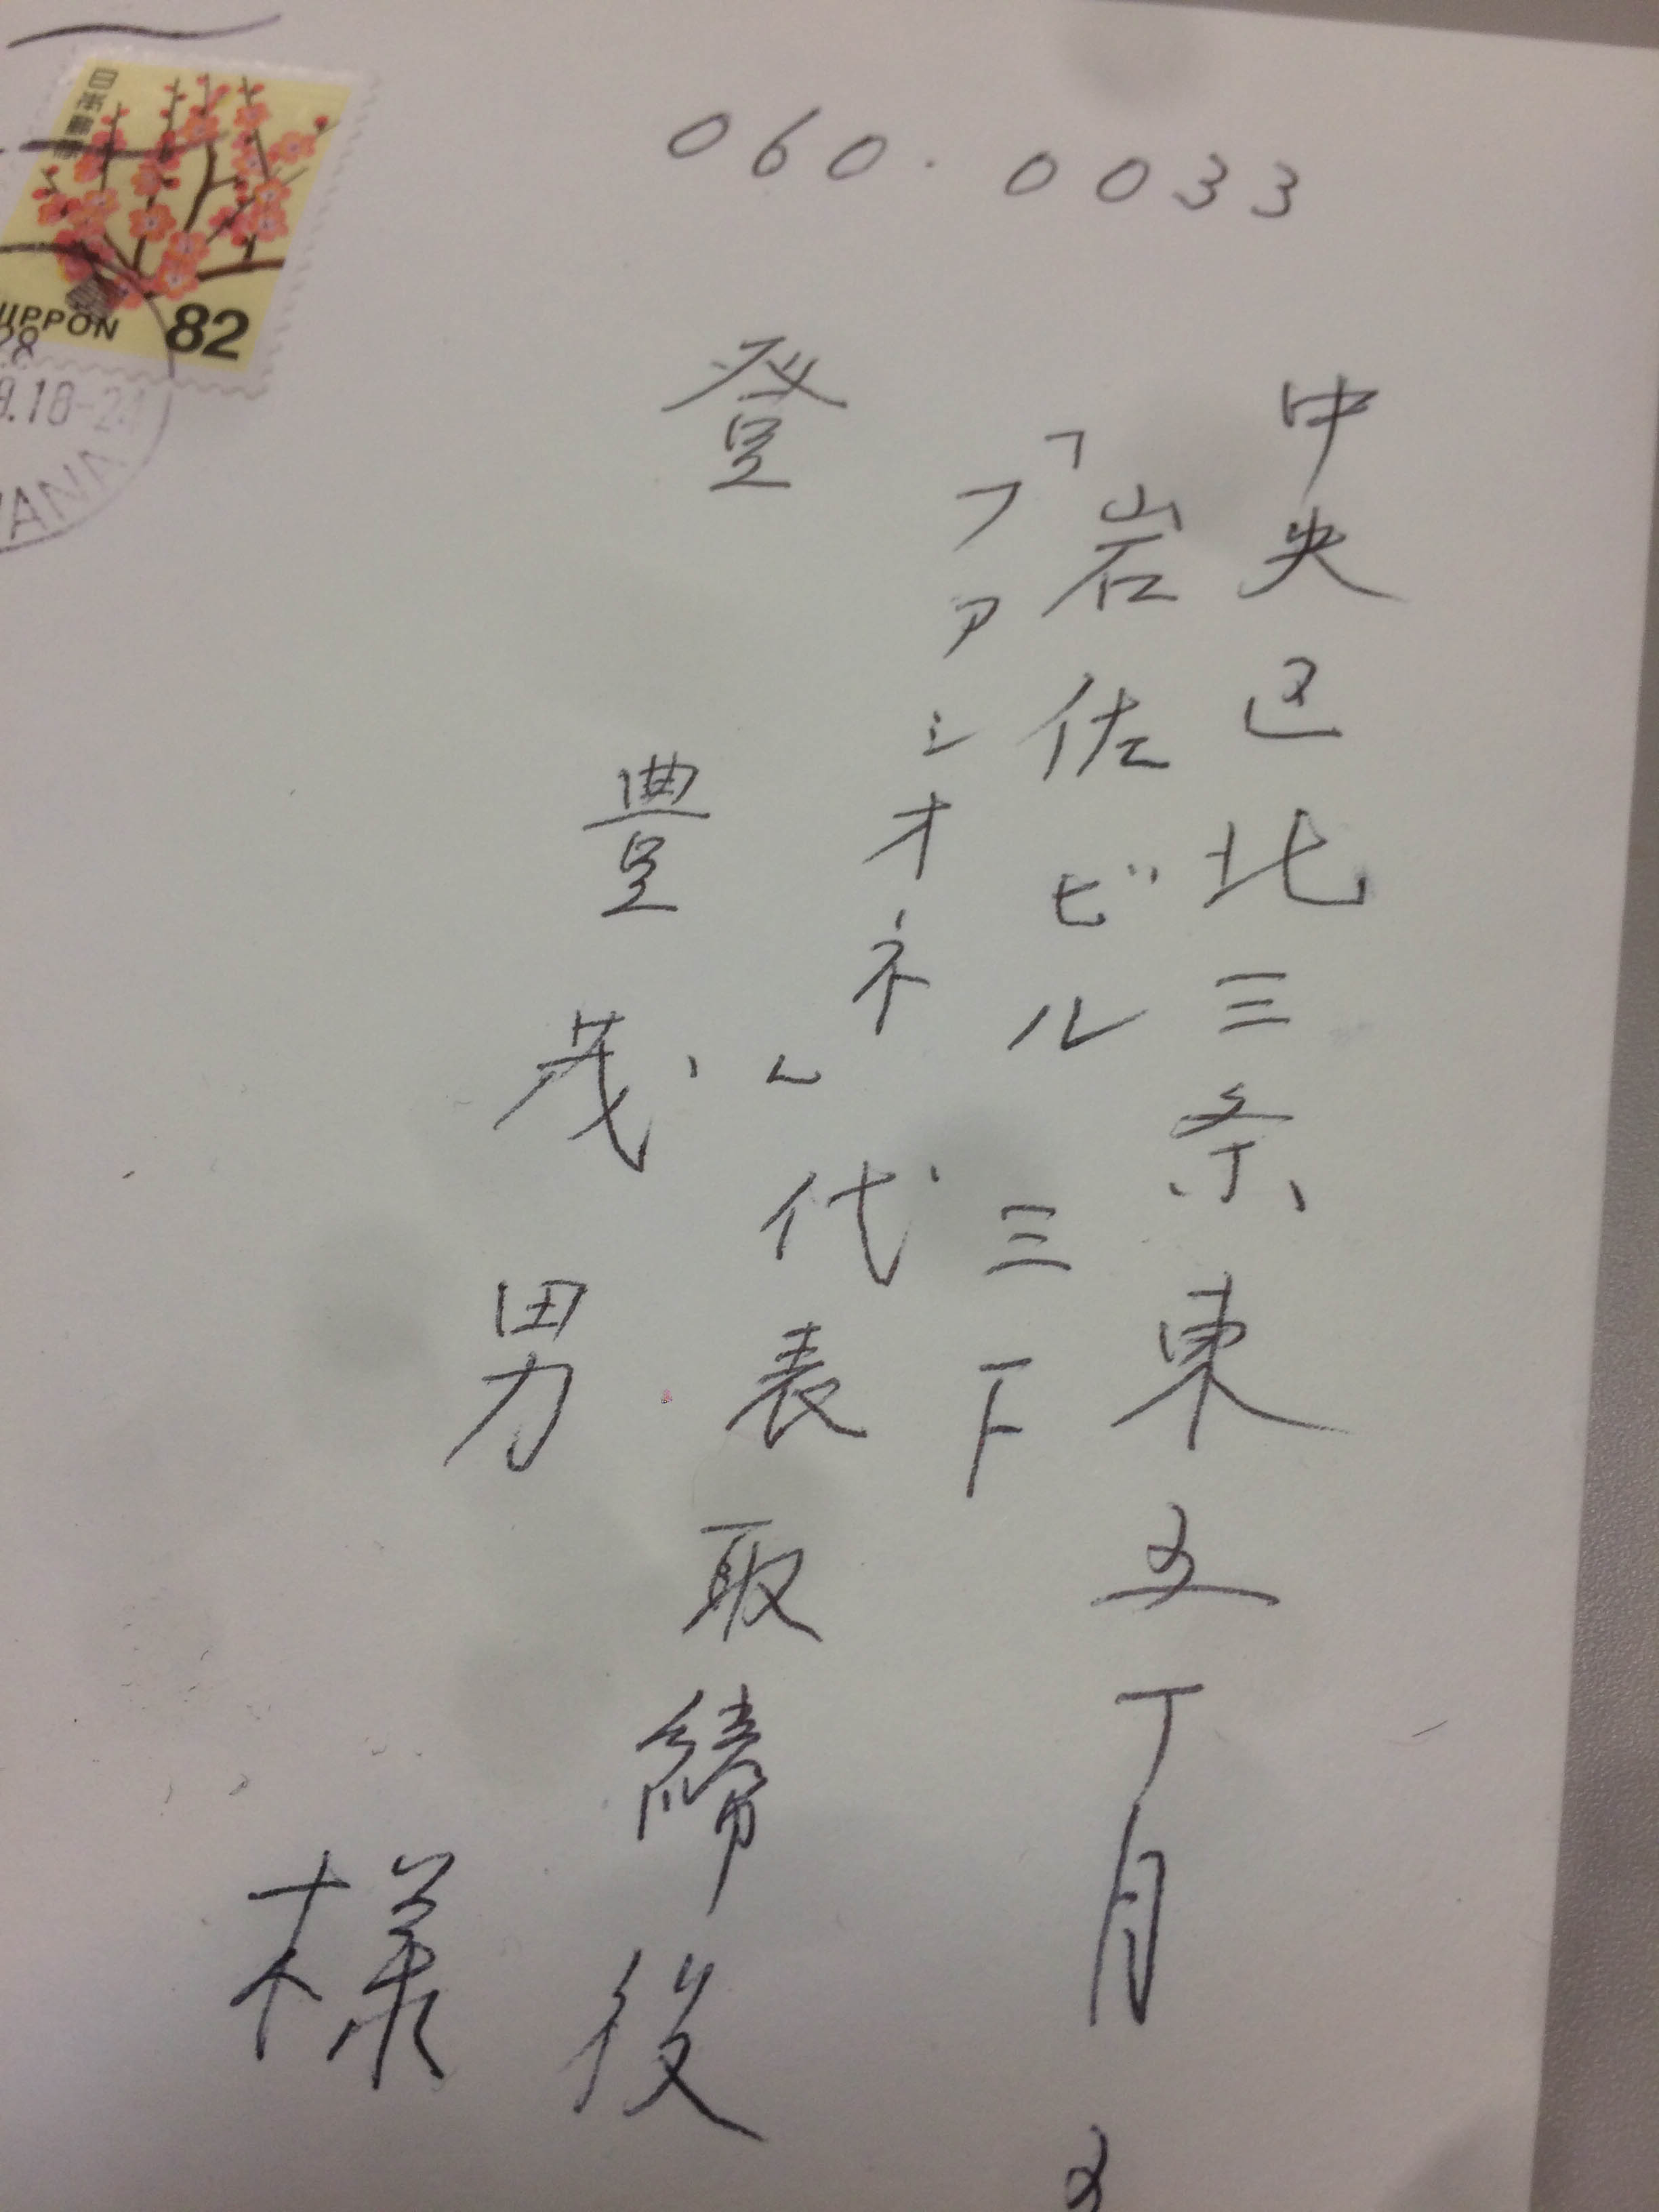 060-0033
中央区北三条東五丁目
岩佐ビル三F
ファシオネ
代表取締役
登豊茂男
様
日本郵便
NIPPON 82
28
18-24